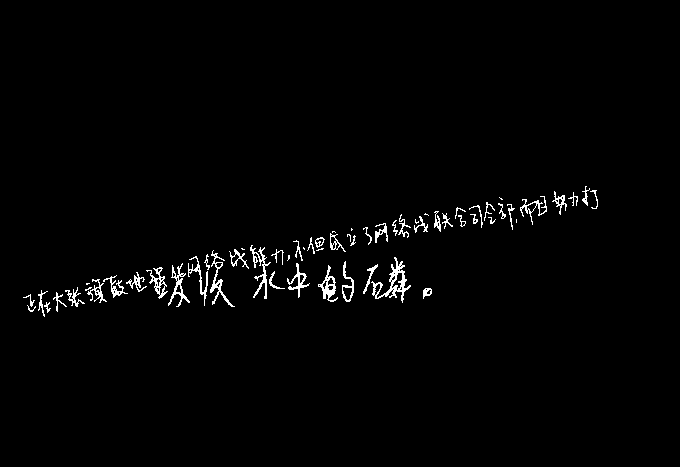 正在大张旗鼓地强化网络战能力,不但成立了网络战联合司令部,而且努力打
发级水中的石粦。